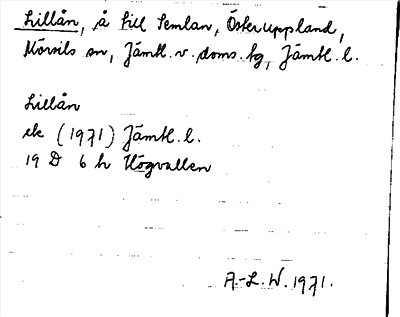 Lillån, å till Semlan, Österuppland,
Mörsils sn, Jämtl. v. doms. tg, Jämtl. l.
Lillån
ek (1971) Jämtl. l.
19 D 6 h Högvallen
A.-L. W. 1971.